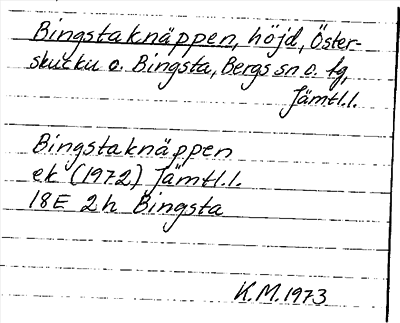 Bingstaknäppen, höjd, Öster-
skutku o. Bingsta, Bergs sn o. tg,
Jämtl.l.
Bingstaknäppen
ek (1972) Jämtl.l.
18E 2h Bingsta
K.M. 1973